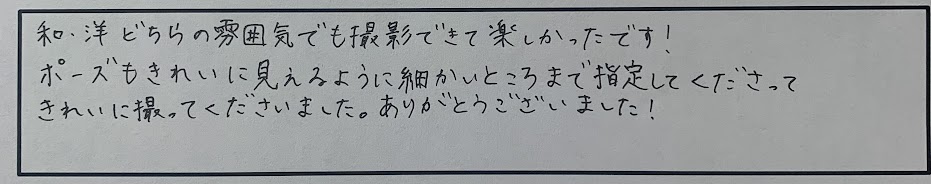 和・洋どちらの雰囲気でも撮影できて楽しかったです!
ポーズもきれいに見えるように細かいところまで指定してくださって
きれいに撮ってくださいました。ありがとうございました!